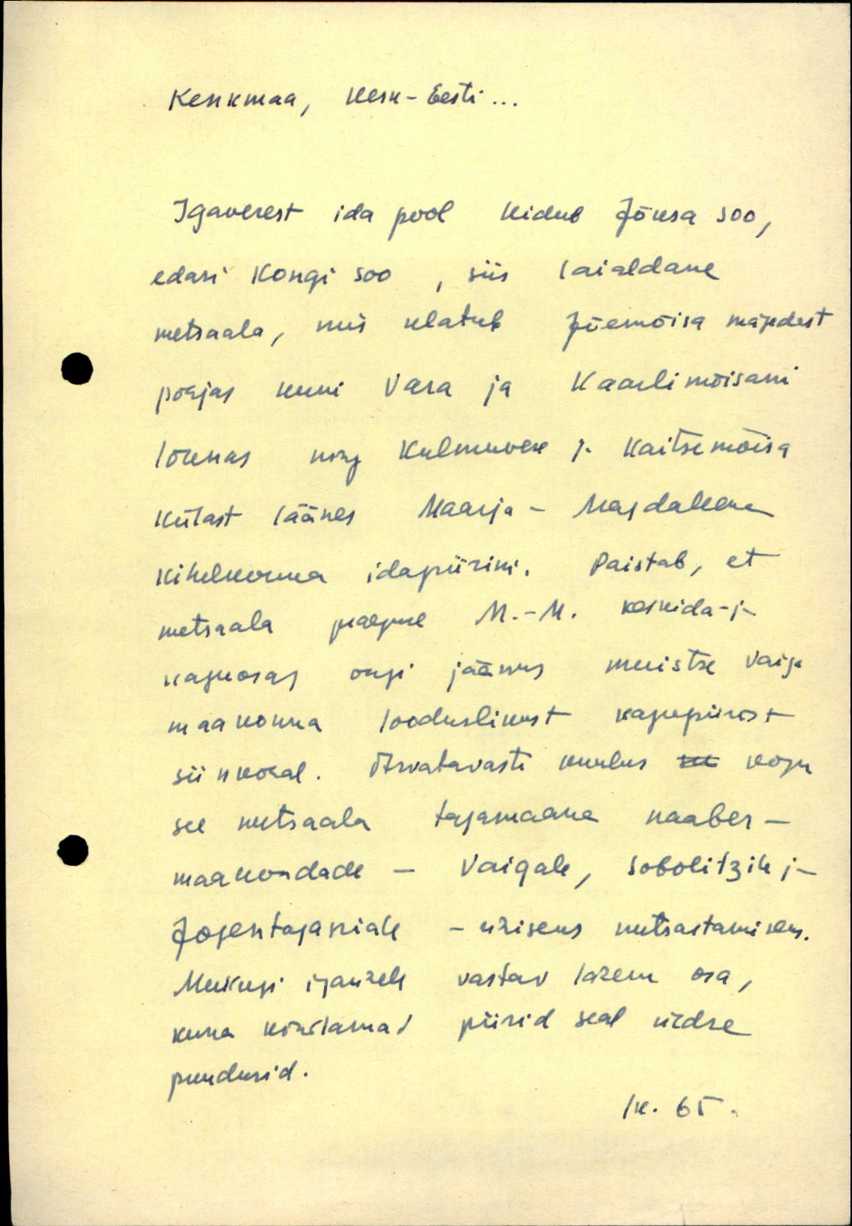 Kenkmaa, Kesk-Eesti...
Igaverest ida pool Kidub Jõusa soo,
edasi Kongi soo, siis laialdane
metsaala, mis ulatub Jõemõisa mapdest
põhjas kuni Vara ja Kaarlimõisani
lõunas ning Kulmuvere j. Kaitsemõisa
külast läänes Maarja-Magdaleena
kihelkonna idapiirini. Paistab, et
metsaala praegune M.-M. keskida- j-
kaguosas ongi jäänus muistse Vaiga
maakonna looduslikust kagupiirist
siinkohal. Arvatavasti kuulus kogu
see metsaala tagamaana naaber-
maakondade - Vaigale, Sobolitzile j-
Jogentaganiale - ühiseks metsastamiseks.
Muidugi igaühele vastav lähem osa,
kuna kõvemad piirid seal üldse
puudusid.
lk. 65.